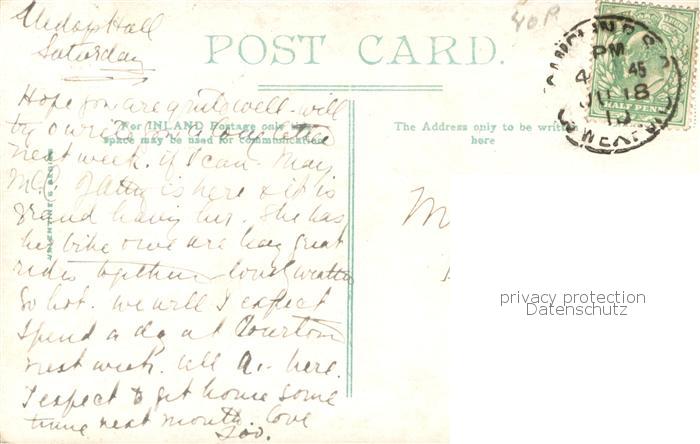 Hall
Saturday
POST CARD.
Hope you are quite well. will
try & write you a long letter
next week. if I can. May
Mc. is here & it is
grand having her. She has
her bike & we are hav great
rides together lovely weather
So hot. we will I expect
spend a day at
next week. all A.1. here.
I expect to get home some
time next month. love
For INLAND Postage only this
space may be used for communication
The Address only to be written
here
VALENTINE'S SERIES
HALF PENNY
PM
45
JU 18
10
privacy protection
Datenschutz